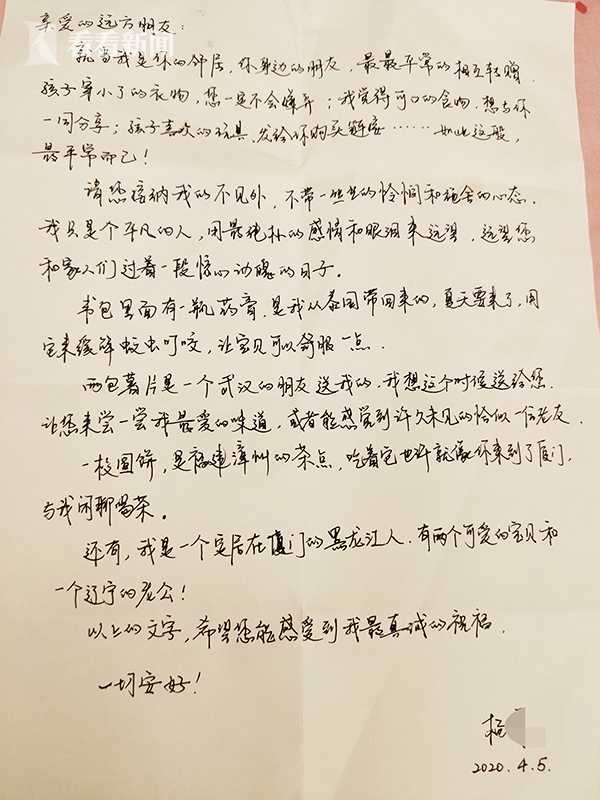 看看新闻
亲爱的远方朋友:
就当我是你的邻居,你身边的朋友,最最平常的相互转赠,
孩子穿小了的衣物,您一定不会嫌弃;我觉得可口的食物,想与你
一同分享;孩子喜欢的玩具,发给你购买链接……如此这般,
最平常而已!
请您接纳我的不见外,不带一丝丝的怜悯和施舍的心态,
我只是个平凡的人,用最纯朴的感情和眼泪来远望,远望您
和家人们过着一段惊心动魄的日子。
书包里面有一瓶药膏,是我从泰国带回来的,夏天要来了,用
它来缓解蚊虫叮咬,让宝贝可以舒服一点.
两包薯片是一个武汉的朋友送我的,我想这个时候送给您,
让您来尝一尝我最爱的味道,或者能感觉到许久未见的恰似一位老友.
一枚圆饼,是福建漳州的茶点,吃着它也许就像你来到了厦门,
与我闲聊喝茶。
还有,我是一个定居在厦门的黑龙江人,有两个可爱的宝贝和
一个辽宁的老公!
以上的文字,希望您能感受到我最真诚的祝福.
一切安好!
2020.4.5.